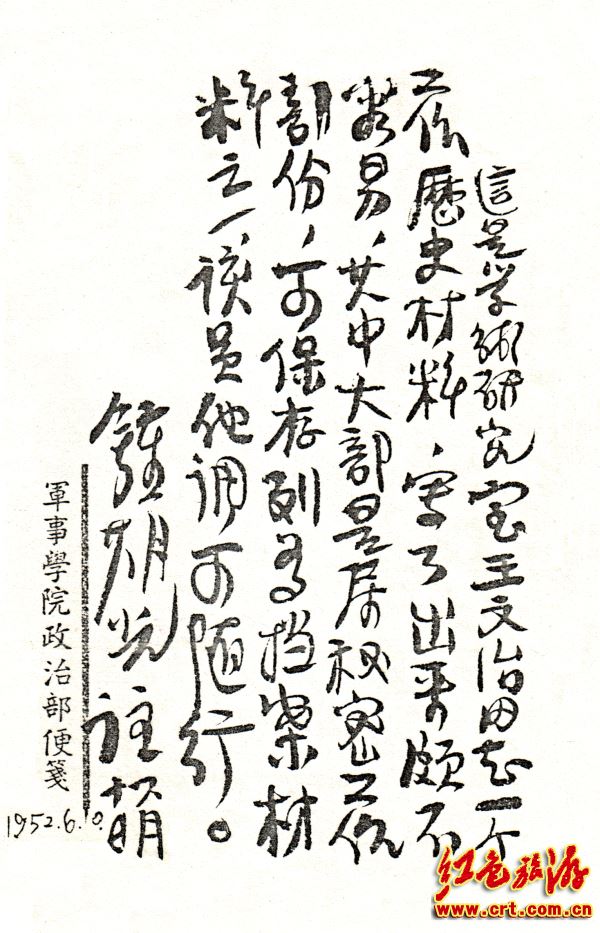 這是学術研究室王文治同志一个
工作歷史材料，寫了出来頗不
容易，其中大部是属秘密工作
部份，可保存列為档案材
料之一，该員他调可随行。
鍾期光註
軍事學院政治部便箋
1952.6.
红色旅游
www.crt.com.cn